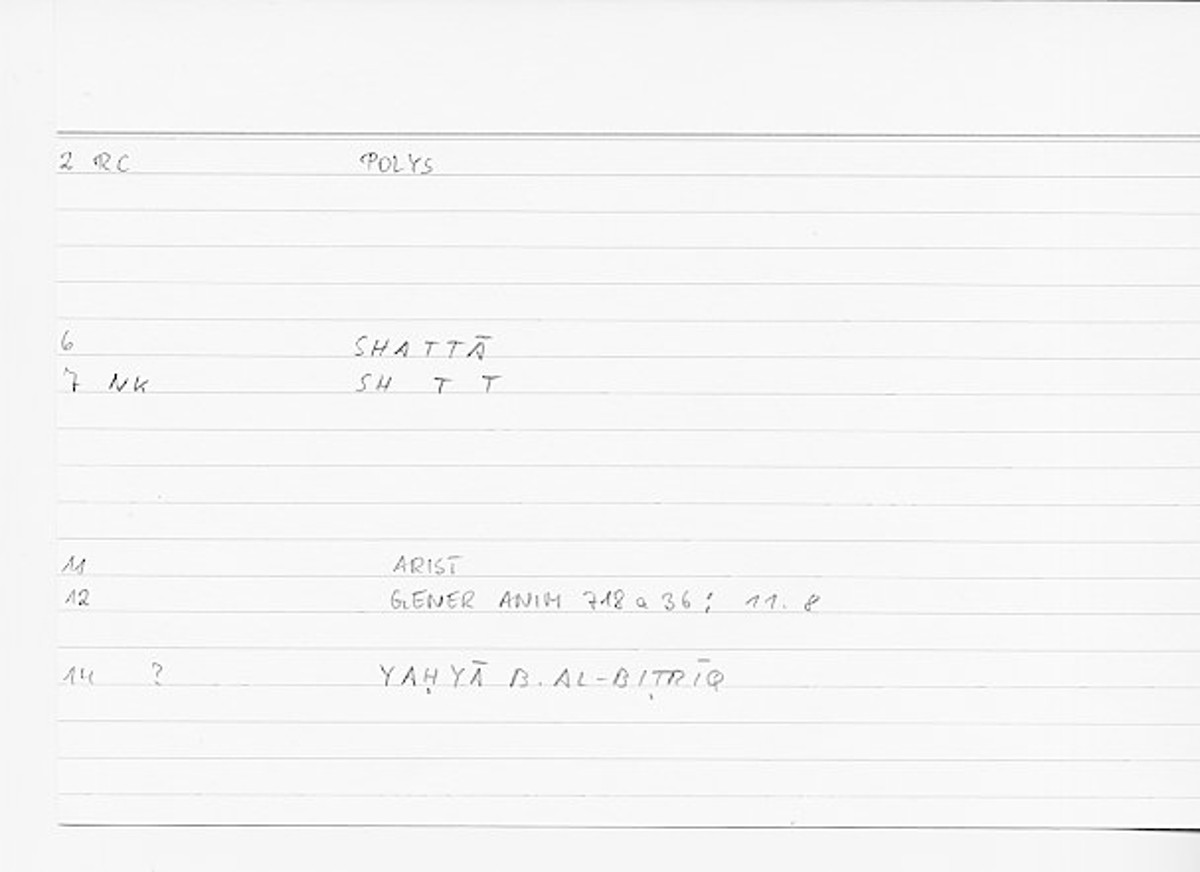 2 RC POLYS
6 SHATTĀ
7 NK SH T T
11 ARIST
12 GENER ANIM 718 a 36; 11.8
14 ? YAḤYĀ B. AL-BIṬRĪQ